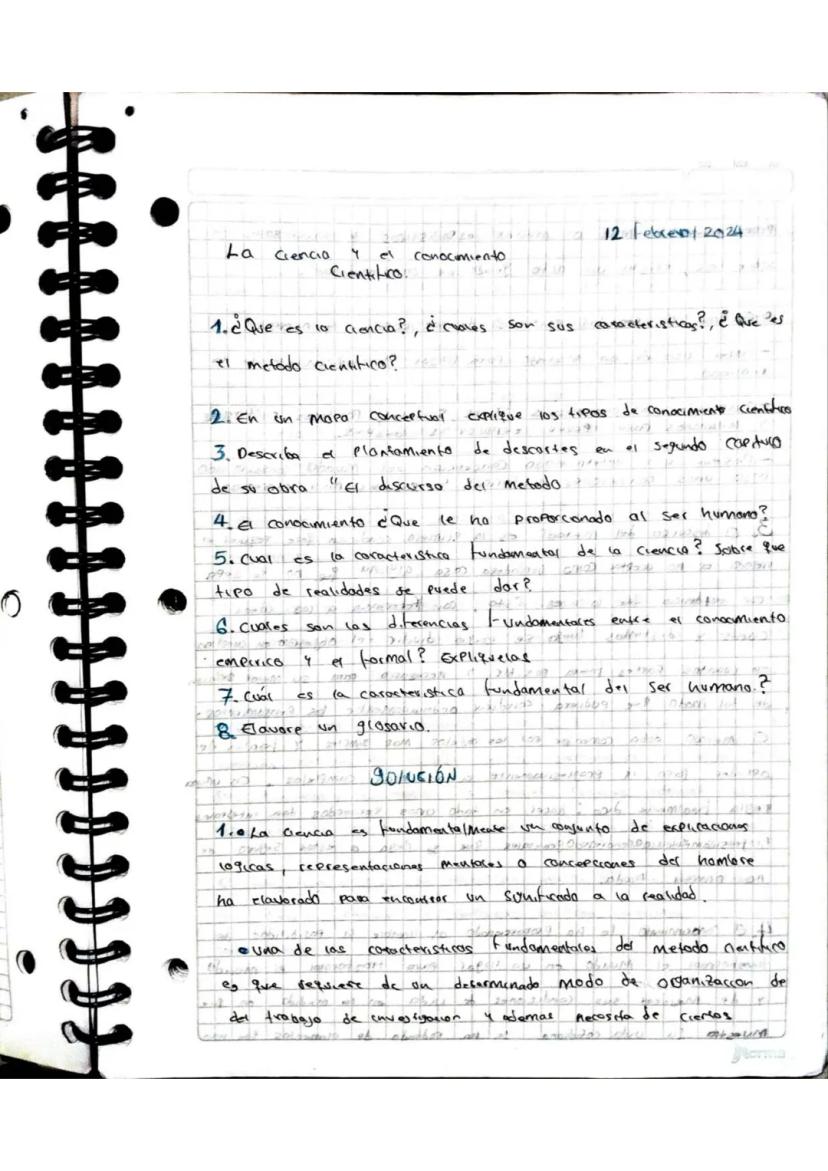 12 Febrero / 2024
La ciencia y el conocimiento
Cientifico.
1. ¿Que es la ciencia?, ¿cuales son sus caracteristicas?, ¿Que es
el metodo cientifico?
2. En un mapa conceptual explique los tipos de conocimiento cientifico
3. Describa el Plantamiento de descartes en el segundo capitulo
de su obra "El discurso del metodo
4. el conocimiento ¿Que le ha proporcionado al ser humano?
5. Cual es la caracteristica fundamental de la ciencia? Sobre que
tipo de realidades se puede dar?
6. Cuales son las diferencias Fundamentales entre el conocimiento
emperico y el formal? Expliquelas
7. Cuál es la caracteristica fundamental del ser humano.?
8. Elavore un glosario.
SOLUCIÓN
1. • La ciencia es fundamentalmente un conjunto de explicaciones
logicas, representaciones mentales o concepciones del hombre
ha elavorado para encontrar un significado a la realidad.
• una de las caracteristicas Fundamentales del metodo cientifico
es que requiere de un determinado modo de organizacion de
del trabajo de investigacion y ademas necesita de ciertos
Norma